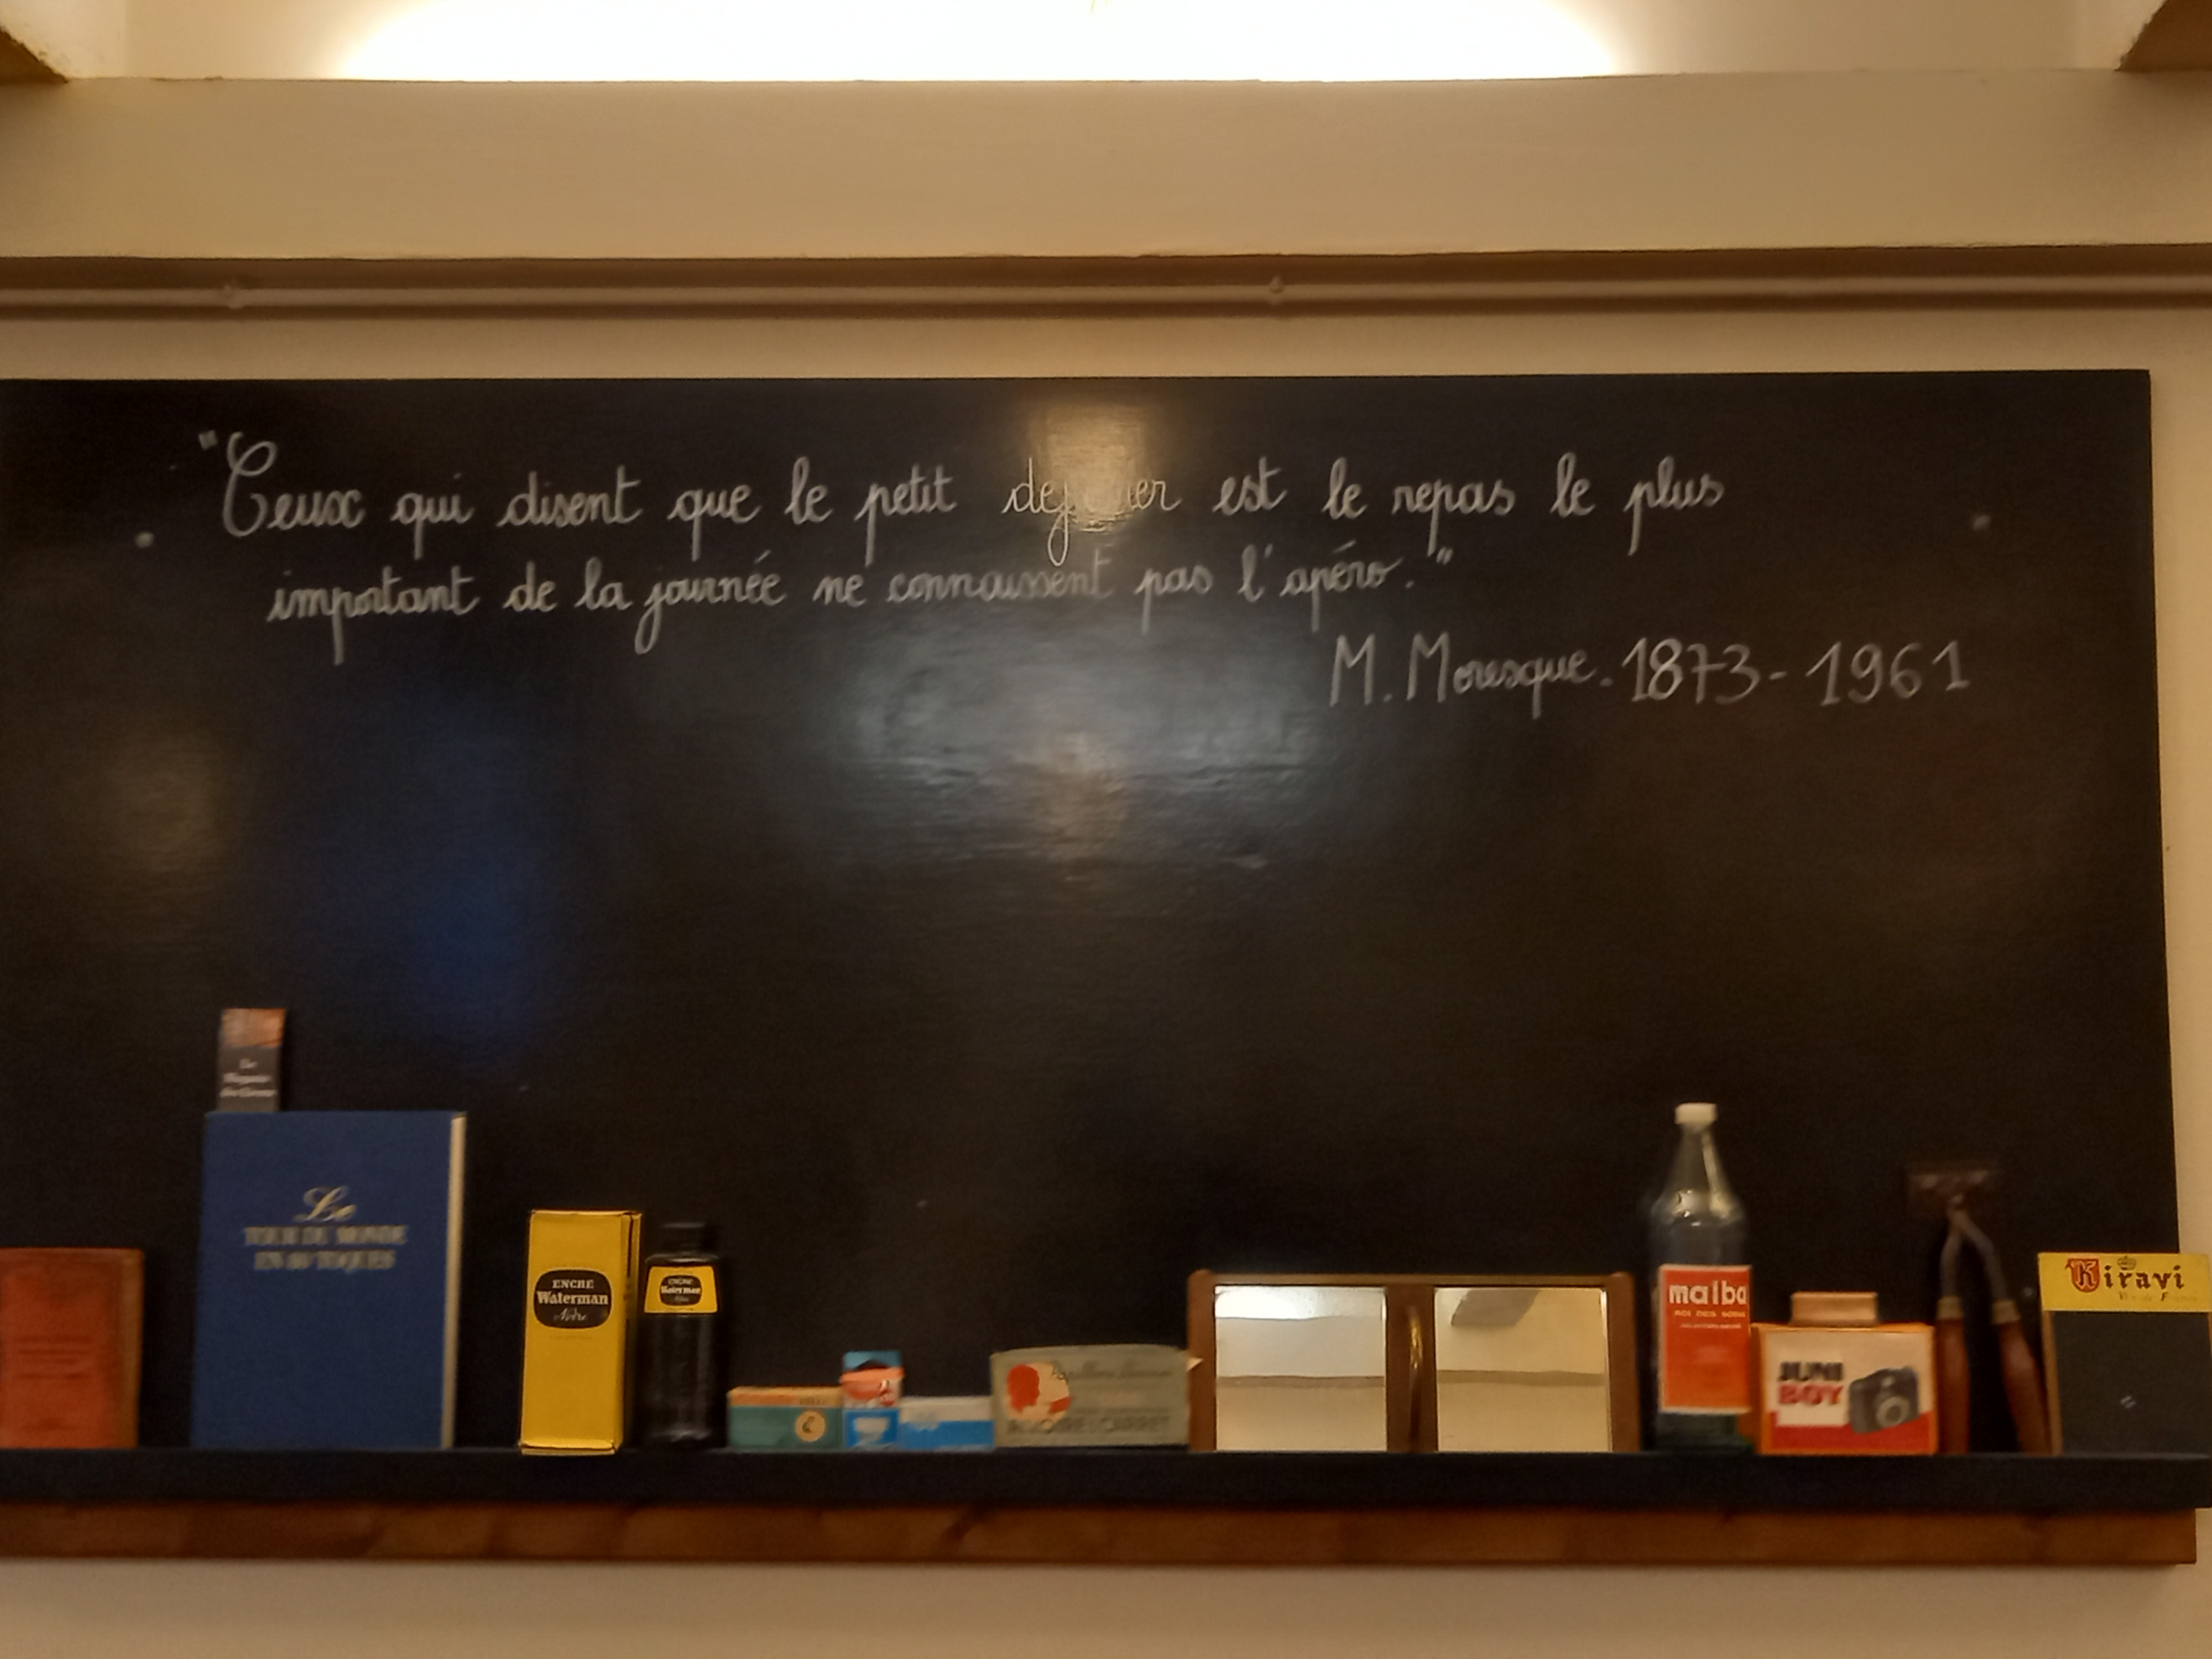 "Ceux qui disent que le petit dejeuner est le repas le plus
important de la journée ne connaissent pas l'apéro."
M. Moresque. 1873 - 1961
Le
TOUR DU MONDE
EN 80 TOQUES
ENCRE
Waterman
Noire
ENCRE
Waterman
RIVOIRE & CARRET
malba
ROI DES SODA
JUNI
BOY
Kiravi